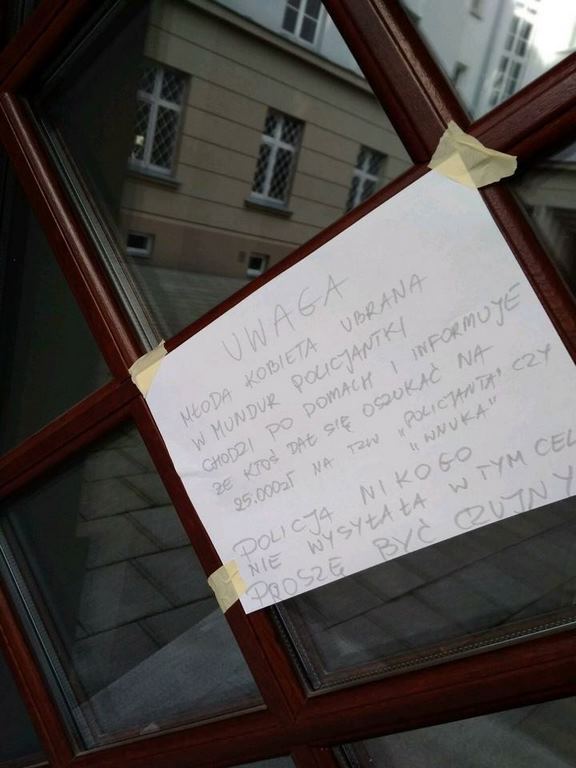 UWAGA
MŁODA KOBIETA UBRANA
W MUNDUR POLICJANTKI
CHODZI PO DOMACH I INFORMUJE
ŻE KTOŚ DAŁ SIĘ OSZUKAĆ NA
25.000zł NA TZW „POLICJANTA" CZY
"WNUKA"
POLICJA NIKOGO
NIE WYSYŁAŁA W TYM CEL
PROSZĘ BYĆ CZUJNY